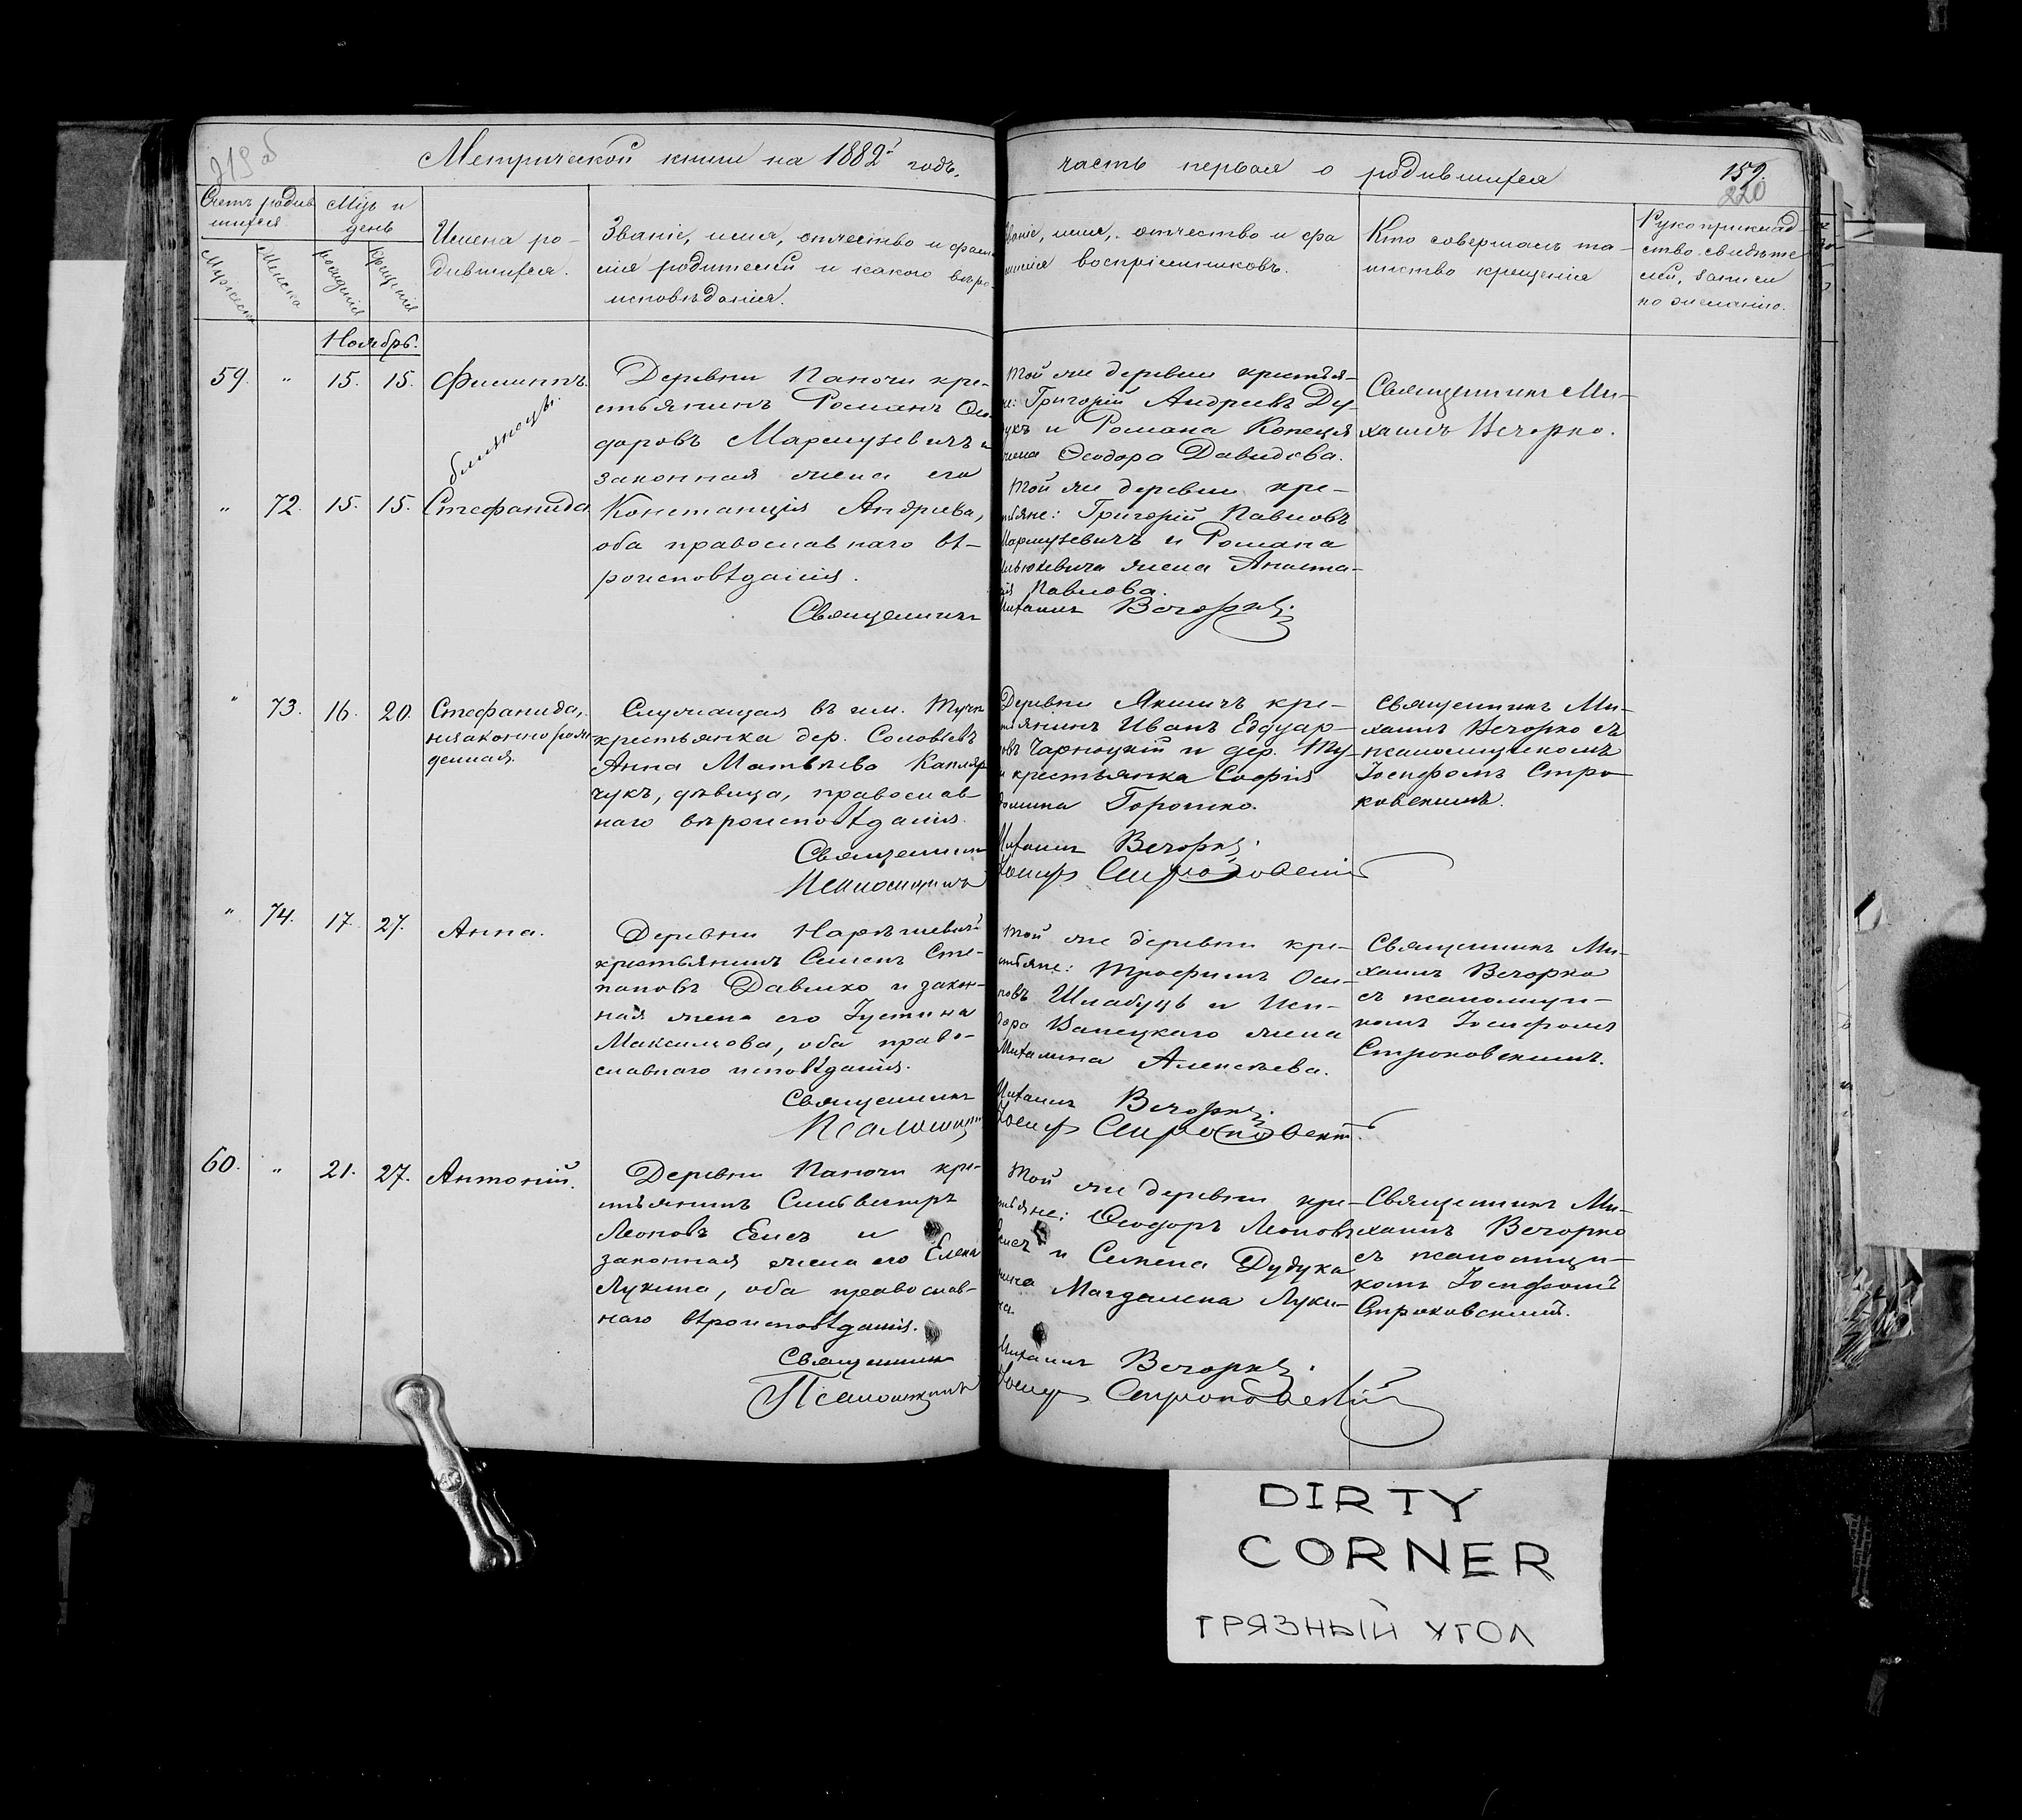 219 об
Метрической книги на 1882й годъ.
часть первая о родившихся
159.
220
Счетъ родив
шихся.
Мужеска
Женска
Мѣц и
день
рожденія
крещенія
Имена ро-
дившихся.
Званіе, имя, отчество и фами
лія родителей и какого вѣро-
исповѣданія.
Званіе, имя, отчество и фа
милія воспріемниковъ.
Кто совершалъ та-
инство крещенія
Рукоприклад
ство свидѣте
лей, записи
по желанію.
Ноябрь.
59. " 15. 15. Филиппъ.
близнецы.
Деревни Паночи кре-
стьянинъ Романъ Ѳео
доровъ Мармузевичъ и
законная жена его
" 72. 15. 15. Стефанида
Констанція Андреева,
оба православнаго вѣ-
роисповѣданія.
Священникъ
Той же деревни крестья-
не: Григорій Андреевъ Ду-
дукъ и Романа Копеця
жена Ѳеодора Давидова.
Той же деревни кре-
стьяне: Григорій Павловъ
Мармузевичъ и Романа
жена Анаста-
сія Павлова.
Михаилъ Вечорко.
Священникъ Ми-
хаилъ Вечорко.
" 73. 16. 20. Стефанида,
незаконнорож
денная.
Служащая въ им. Тучи
крестьянка дер. Соловьевъ
Анна Матвѣева Капляр
чукъ, дѣвица, православ-
наго вѣроисповѣданія.
Священникъ
Псаломщикъ
Деревни Якшичъ кре-
стьянинъ Иванъ Едуар-
довъ Чарноцкій и дер. Ту-
чи крестьянка Софія
Горошко.
Михаилъ Вечорко.
Іосифъ Строковскій
Священникъ Ми-
хаилъ Вечорко съ
псаломщикомъ
Іосифомъ Стро-
ковскимъ.
" 74. 17. 27. Анна.
Деревни
крестьянинъ Семенъ Сте-
пановъ Давлико и закон-
ная жена его Іустина
Максимова, оба право-
славнаго исповѣданія.
Священникъ
Псаломщикъ
Той же деревни кре-
стьяне: Трофимъ Оси-
повъ Шлабуць и Иси-
дора Капецкаго жена
Михалина Алексѣева.
Михаилъ Вечорко.
Іосифъ Строковскій.
Священникъ Ми-
хаилъ Вечорко
съ псаломщи-
комъ Іосифомъ
Строковскимъ.
60. " 21. 27. Антоній.
Деревни Паночи кре-
стьянинъ Сильвестръ
Леоновъ Елисъ и
законная жена его Елена
Лукина, оба православ-
наго вѣроисповѣданія.
Священникъ
Псаломщикъ
Той же деревни кре-
стьяне: Ѳеодоръ Леоновъ
Елисъ и Семена Дудука
жена Магдалена Луки-
на.
Михаилъ Вечорко.
Іосифъ Строковскій
Священникъ Ми-
хаилъ Вечорко
съ псаломщи-
комъ Іосифомъ
Строковскимъ.
DIRTY
CORNER
ГРЯЗНЫЙ УГОЛ